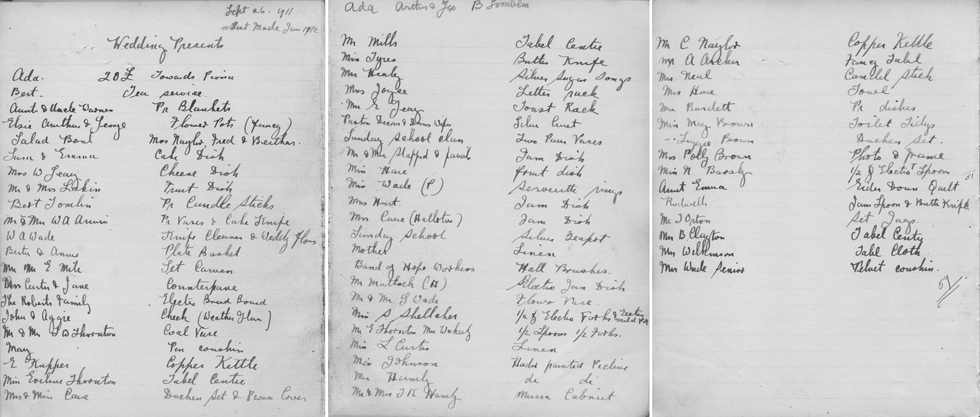 Sept 26. 1911
Wedding Presents
Ada. 20£ Towards Piona
Bert. Tea service.
Aunt & Uncle Warner Pr Blankets
Elsie Arnthur & George Flower Pots (Fancy)
Salad Bowl Mrs Naylor, Fred &
Sam & Emma Cake Dish
Mrs W Jeary Cheese Dish
Mr & Mrs Lakin Fruit Dish
Bert Tomlin Pr Candle Sticks
Mr & Mrs W A Pr Vases & Cake Knife
W A Wade Knife Cleaner &
Bertie & Annie Plate Basket
Mr Mrs E Mile Set Carvers
Mrs Curtis & Jane Counterpane
The Roberts Family Electro Bread Board
John & Aggie Check (Weather Glass)
Mr & Mrs J B Thornton Coal Vase
Mary Pin coushin
E Kupper Copper Kettle
Miss Eveline Thornton Tabel Centre
Mrs & Miss Cave Duchess Set & Piona Cover
Ada Arthur & Geo B Tomblin
Mr Mills Tabel Centre
Miss Tyres Butter Knife
Mr Healy Silver Sugar Tongs
Mrs Joyce Letter rack
Mr E Jeary Toast Rack
Silver Cruet
Sunday School class Two Pair Vases
Mr & Mrs & famil Jam Dish
Miss Hare fruit dish
Miss Wade (P) Serveutte rings
Mrs Hurt Jam Dish
Mrs Cave (Hallaton) Jam Dish
Sunday School Silver Teapot
Mother Linen
Band of Hope Workers Hall Brushes.
Mr Matlock (H) Electro Jam Dish
Mr & Mrs G Wade Flower Vase
Miss S Shellaker 1/2 Electro Forks &
Mr E Thornton Mrs 1/2 Spoons 1/2 Forks.
Miss L Curtis Linen
Miss Johnson Hand painted Picture
Mr Hamly di di
Mr & Mrs J R Hamly Music Cabinet
Mr C Naylor Copper Kettle
Mr A Archer Fancy Tabel
Mr Neal Candel Stick
Mrs Hare Towel
Mr Burdett Pr dishes
Miss May Brown Toilet Tidys
" Lizzie Brown Duchess Set.
Mrs Polly Brown Photo & Frame
Miss N 1/2 Electro Spoons
Aunt Emma Eider Down Quilt
Rodwells Jam Spoon & Butter Knife
Mr J Orton Set Jugs.
Mr B Clayton Tabel Centre
Mrs Wilkinson Tabel Cloth
Mrs Wade Senior Velvet coushin.